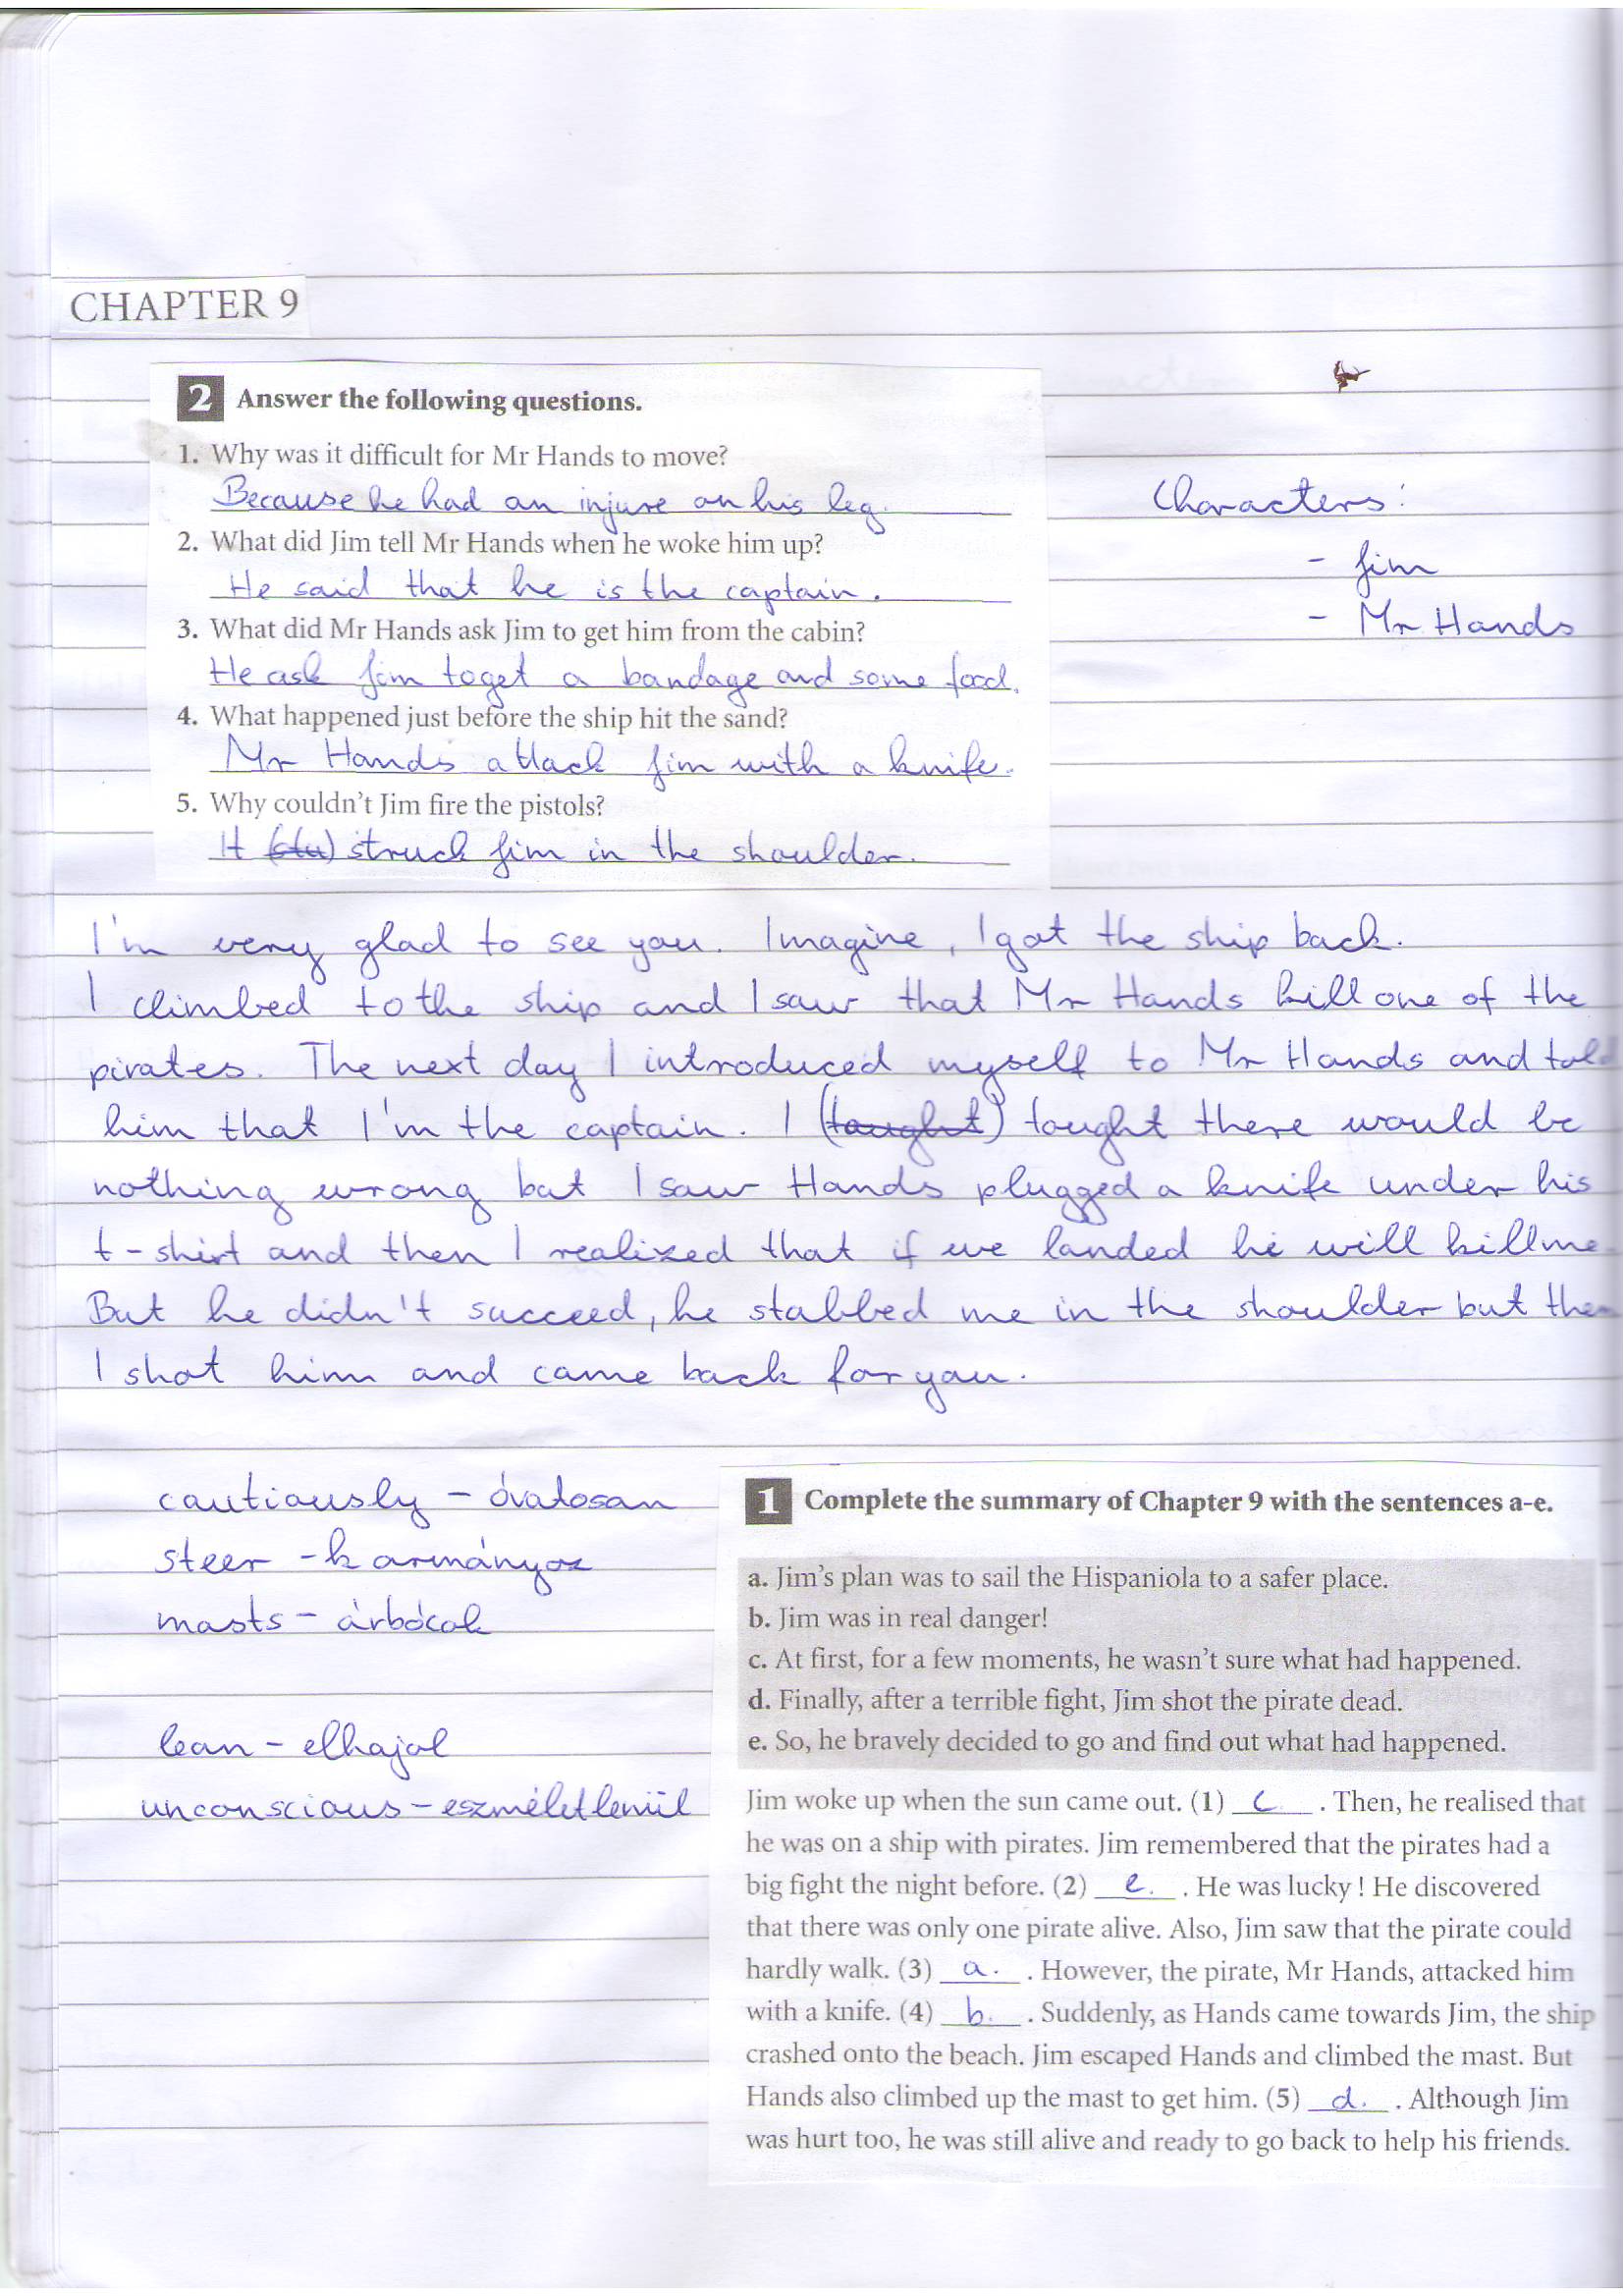 CHAPTER 9
2 Answer the following questions.
1. Why was it difficult for Mr Hands to move?
Because he had an injure on his leg.
2. What did Jim tell Mr Hands when he woke him up?
He said that he is the captain.
3. What did Mr Hands ask Jim to get him from the cabin?
He ask Jim to get a bandage and some food.
4. What happened just before the ship hit the sand?
Mr Hands attack Jim with a knife.
5. Why couldn't Jim fire the pistols?
It (stu) struck Jim in the shoulder.
Characters:
- Jim
- Mr Hands
I'm very glad to see you. Imagine, I got the ship back.
I climbed to the ship and I saw that Mr Hands kill one of the
pirates. The next day I introduced myself to Mr Hands and told
him that I'm the captain. I (taught) tought there would be
nothing wrong but I saw Hands plugged a knife under his
t-shirt and then I realized that if we landed he will kill me.
But he didn't succeed, he stabbed me in the shoulder but then
I shot him and came back for you.
cautiously - óvatosan
steer - kormányoz
masts - árbócok
lean - elhajol
unconscious - eszméletlenül
1 Complete the summary of Chapter 9 with the sentences a-e.
a. Jim's plan was to sail the Hispaniola to a safer place.
b. Jim was in real danger!
c. At first, for a few moments, he wasn't sure what had happened.
d. Finally, after a terrible fight, Jim shot the pirate dead.
e. So, he bravely decided to go and find out what had happened.
Jim woke up when the sun came out. (1) c . Then, he realised that
he was on a ship with pirates. Jim remembered that the pirates had a
big fight the night before. (2) e. . He was lucky ! He discovered
that there was only one pirate alive. Also, Jim saw that the pirate could
hardly walk. (3) a. . However, the pirate, Mr Hands, attacked him
with a knife. (4) b. . Suddenly, as Hands came towards Jim, the ship
crashed onto the beach. Jim escaped Hands and climbed the mast. But
Hands also climbed up the mast to get him. (5) d. . Although Jim
was hurt too, he was still alive and ready to go back to help his friends.